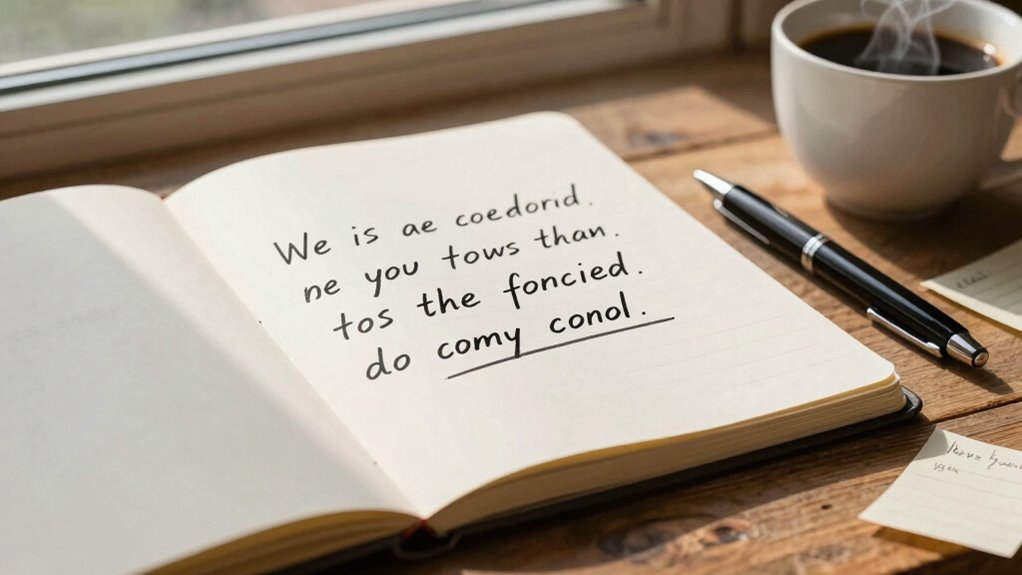 We is ae coedorid.
ne you tows than.
tos the foncied.
do comy conol.